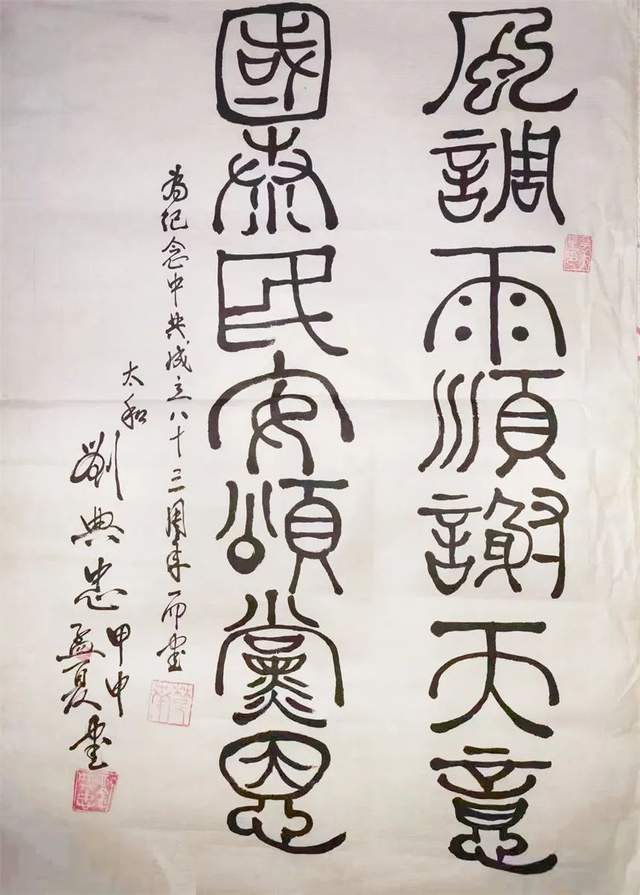 風調雨順謝天意
國泰民安頌黨恩
為纪念中共成立八十三周年而书
太和
劉典忠
甲申
孟夏书